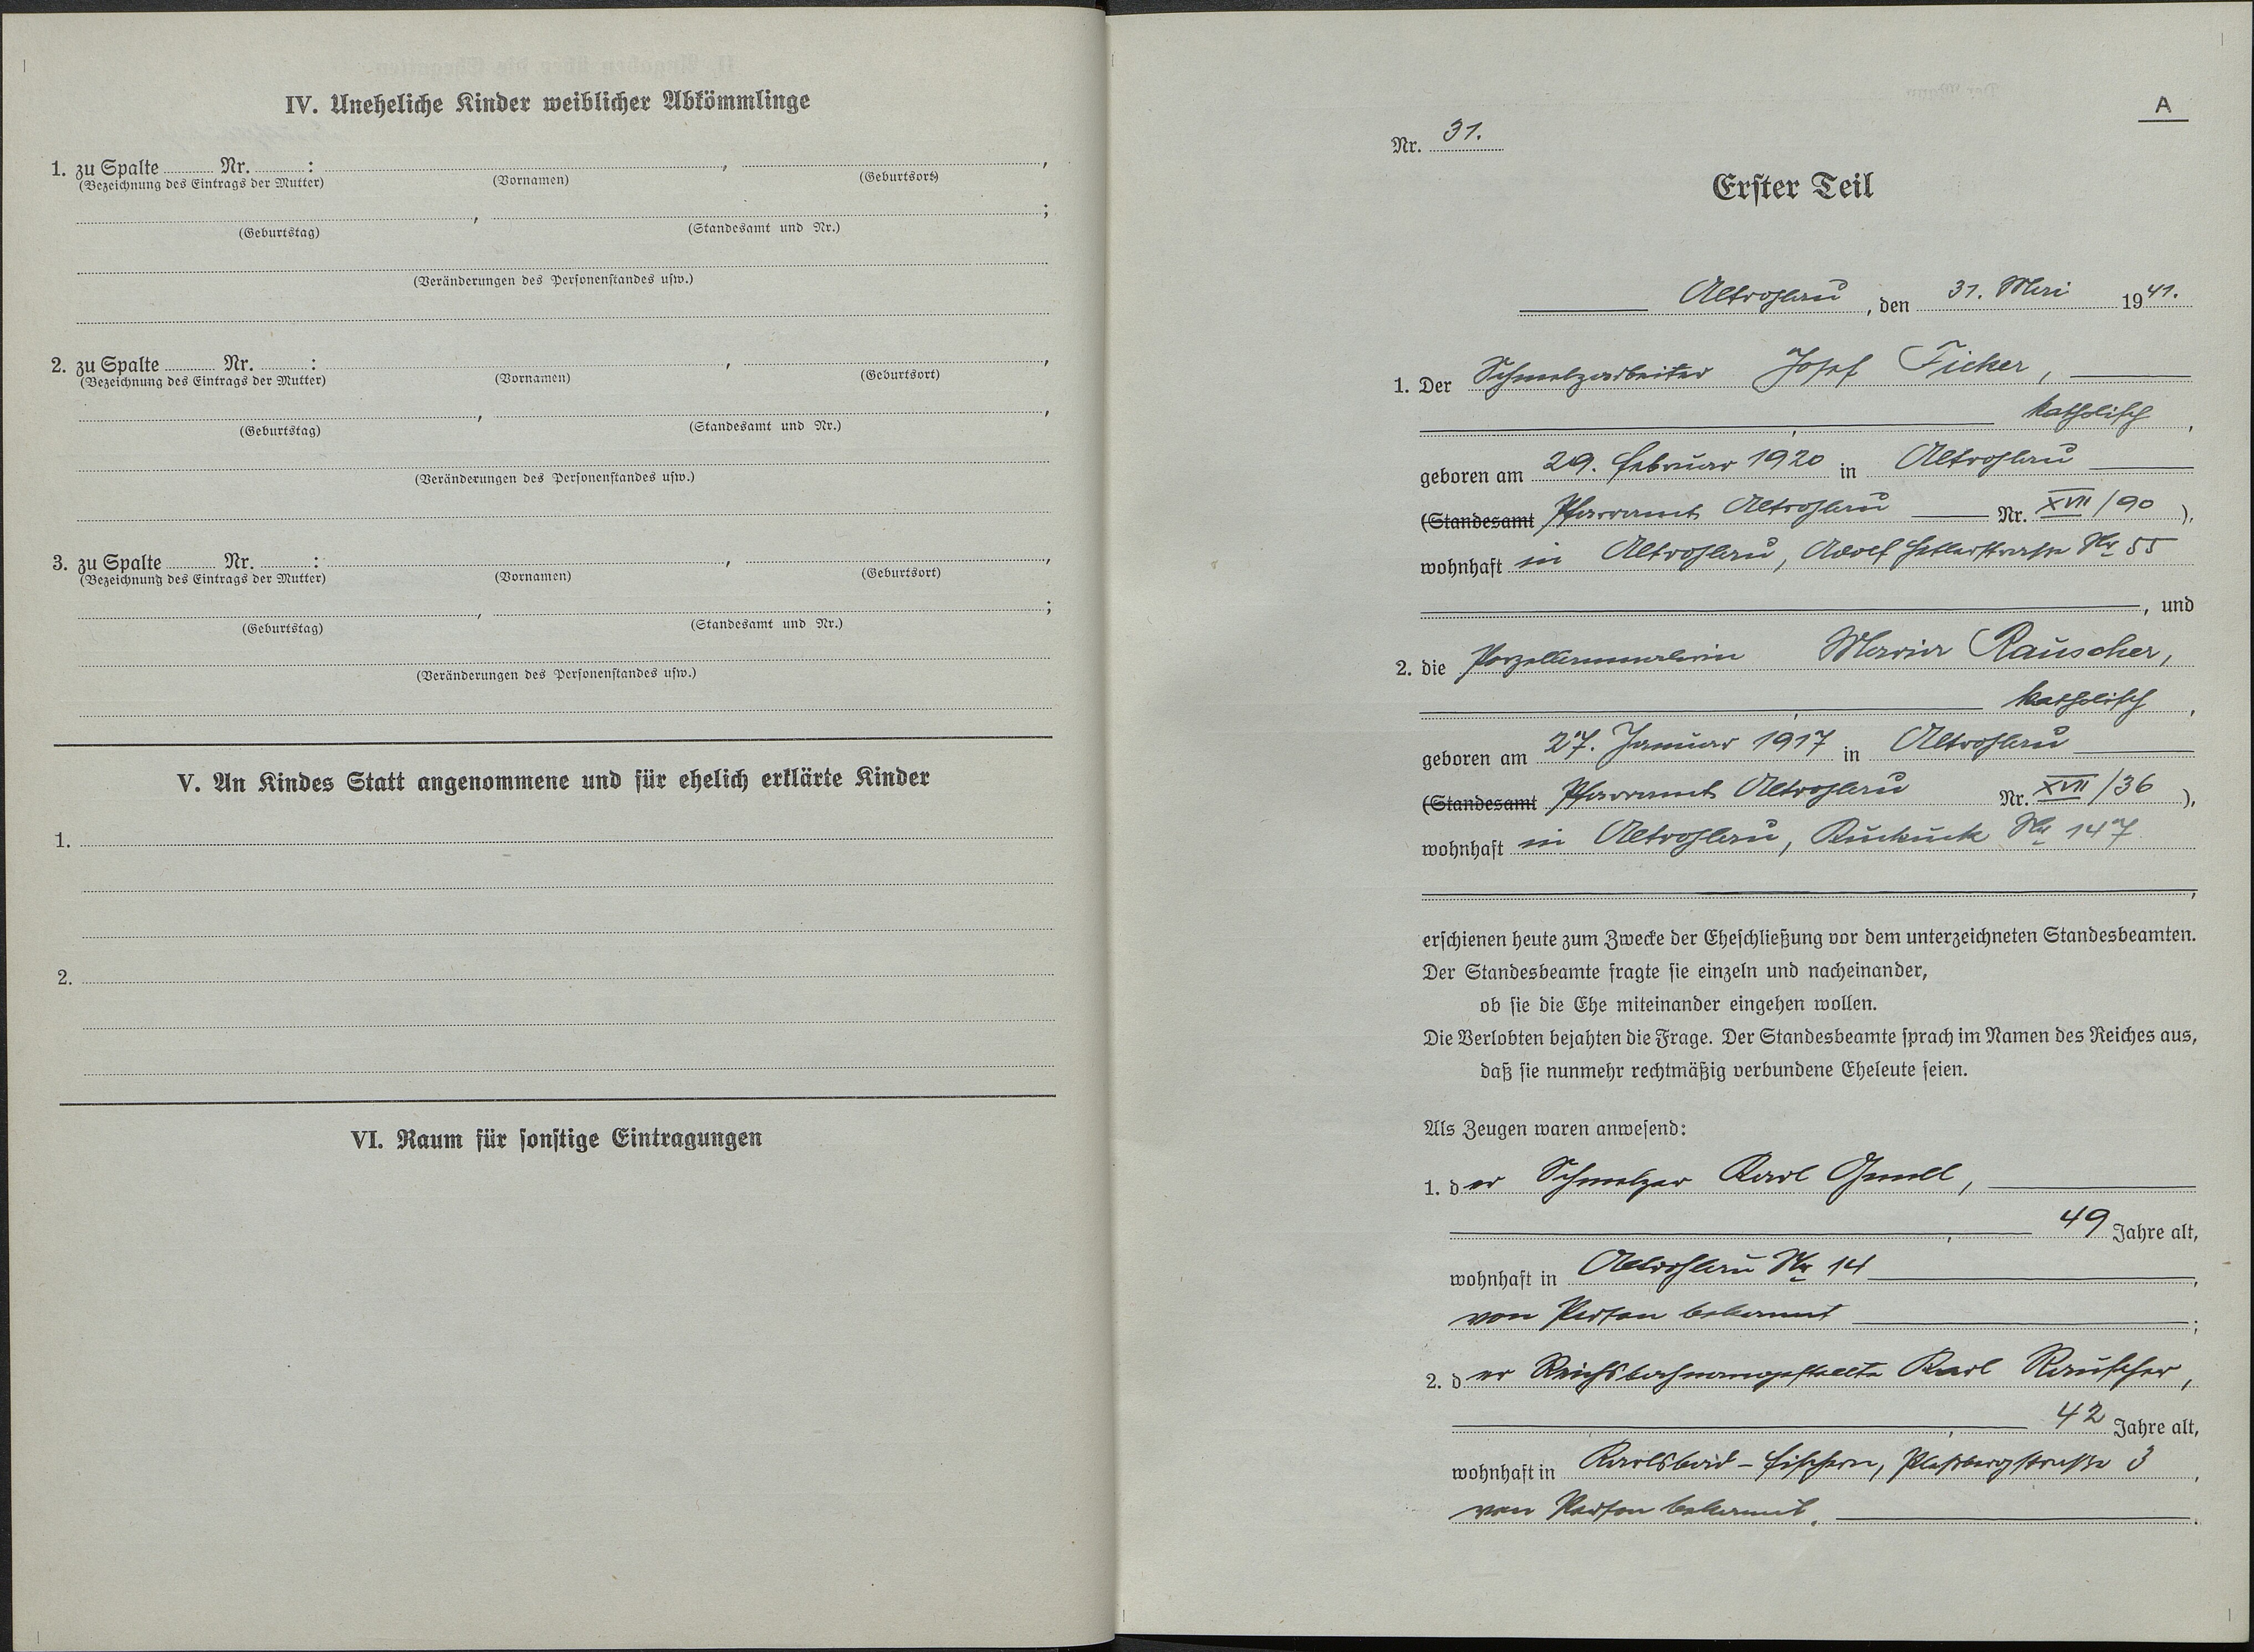 IV. Uneheliche Kinder weiblicher Abkömmlinge
1. zu Spalte ........ Nr. ........ : , ,
(Bezeichnung des Eintrags der Mutter) (Vornamen) (Geburtsort)
, ;
(Geburtstag) (Standesamt und Nr.)
(Veränderungen des Personenstandes usw.)
2. zu Spalte ........ Nr. ........ : , ,
(Bezeichnung des Eintrags der Mutter) (Vornamen) (Geburtsort)
, ,
(Geburtstag) (Standesamt und Nr.)
(Veränderungen des Personenstandes usw.)
3. zu Spalte ........ Nr. ........ : , ,
(Bezeichnung des Eintrags der Mutter) (Vornamen) (Geburtsort)
, ;
(Geburtstag) (Standesamt und Nr.)
(Veränderungen des Personenstandes usw.)
V. An Kindes Statt angenommene und für ehelich erklärte Kinder
1.
2.
VI. Raum für sonstige Eintragungen
A
Nr. 31.
Erster Teil
Altrohlau, den 31. Mai 1941.
1. Der Schmelzarbeiter Josef Ficker,
katholisch,
geboren am 29. Februar 1920 in Altrohlau
(Standesamt Pfarramt Altrohlau Nr. XVII/90),
wohnhaft in Altrohlau, Adolf Hitlerstraße Nr 55
, und
2. die Porzellanmalerin Maria Rauscher,
katholisch,
geboren am 27. Januar 1917 in Altrohlau
(Standesamt Pfarramt Altrohlau Nr. XVII/36),
wohnhaft in Altrohlau, Kuckuck Nr 147
,
erschienen heute zum Zwecke der Eheschließung vor dem unterzeichneten Standesbeamten.
Der Standesbeamte fragte sie einzeln und nacheinander,
ob sie die Ehe miteinander eingehen wollen.
Die Verlobten bejahten die Frage. Der Standesbeamte sprach im Namen des Reiches aus,
daß sie nunmehr rechtmäßig verbundene Eheleute seien.
Als Zeugen waren anwesend:
1. der Schmelzer Karl
49 Jahre alt,
wohnhaft in Altrohlau Nr 14,
von Person bekannt;
2. der Reichsbahnangestellte Karl Rauscher,
42 Jahre alt,
wohnhaft in Karlsbad - Fischern, Plaßbergstraße 3,
von Person bekannt.